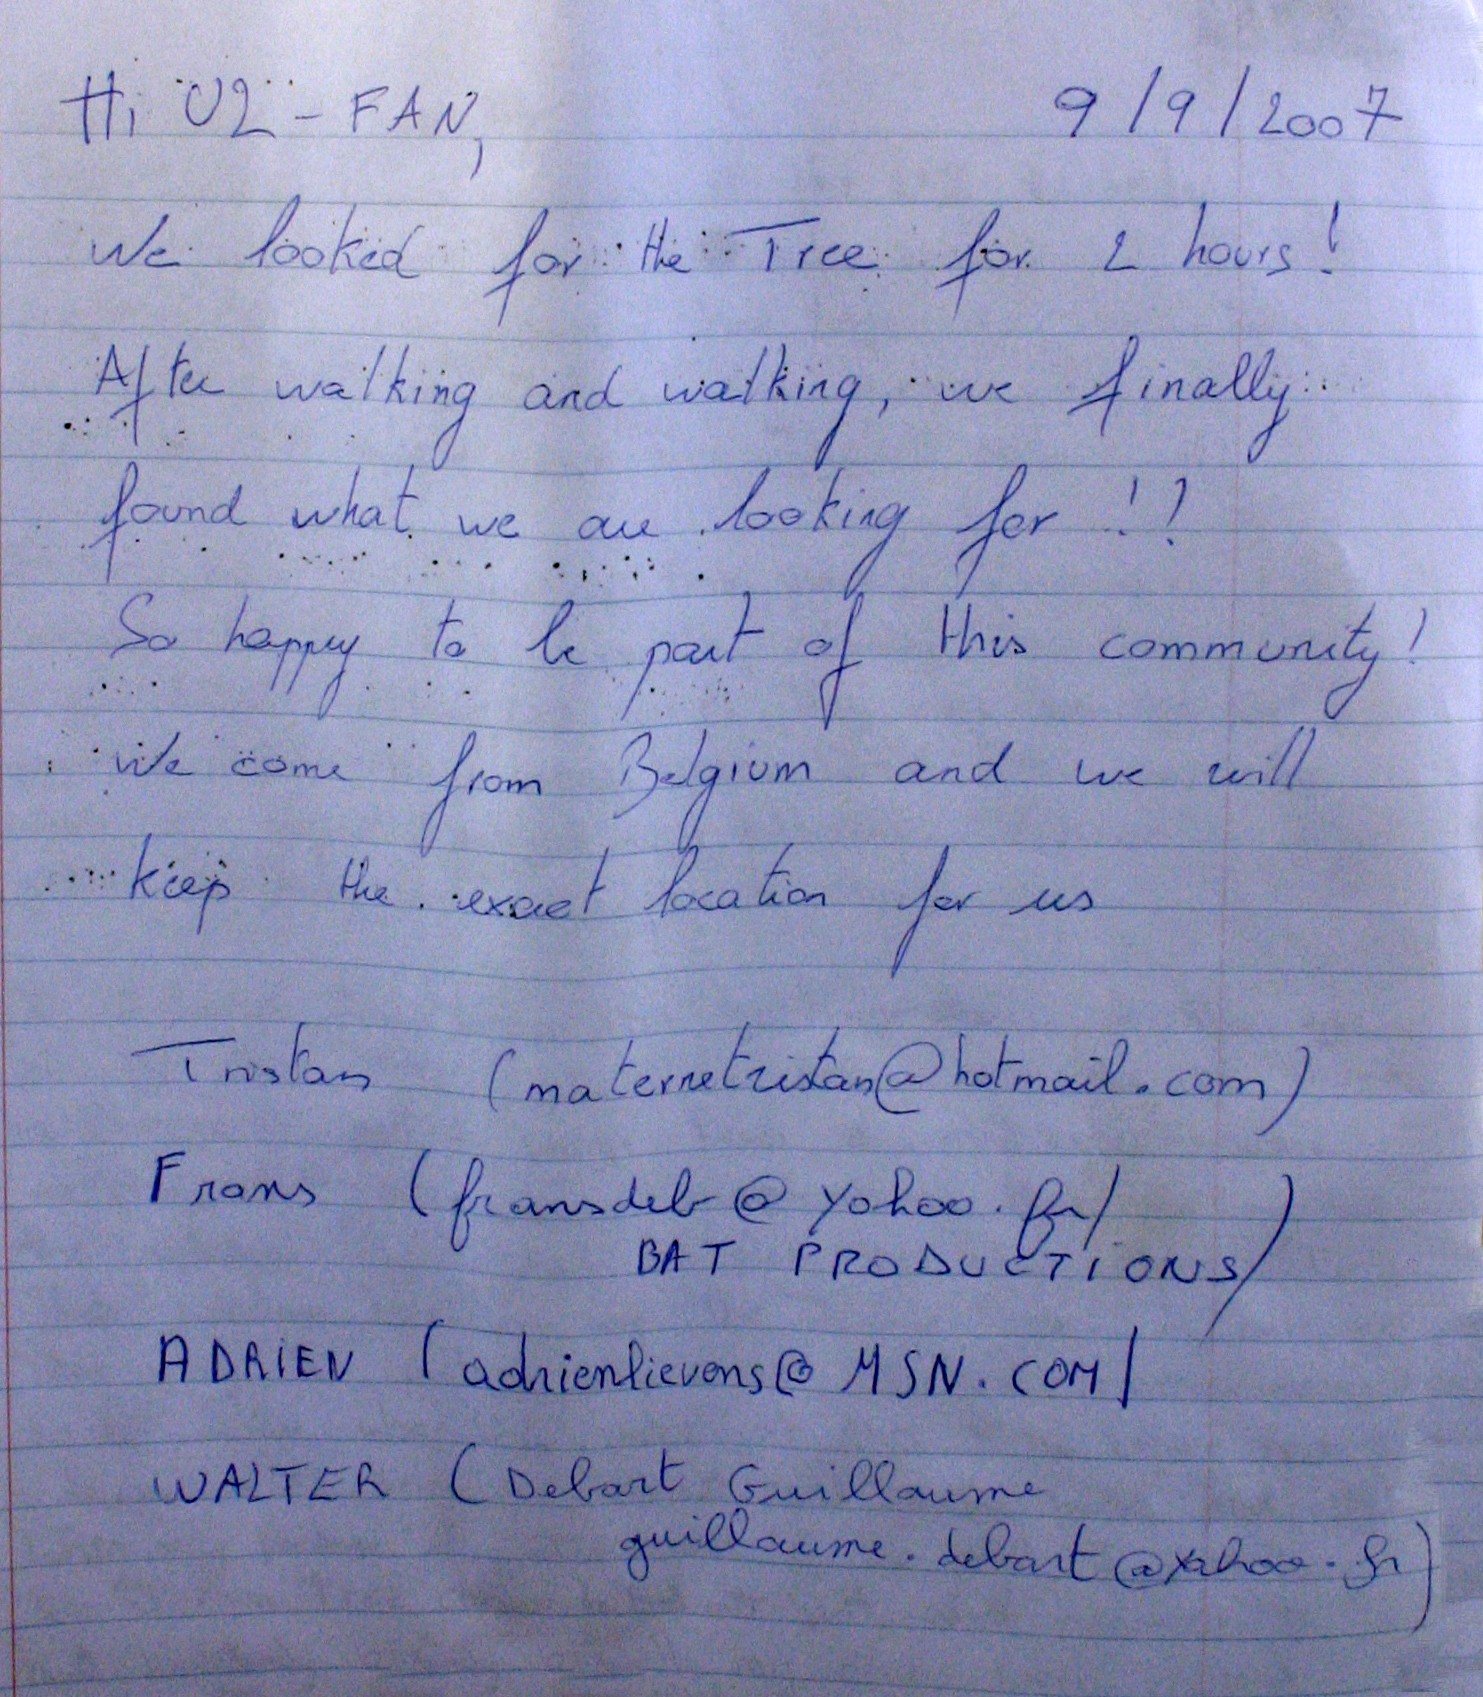 Hi U2-FAN, 9/9/2007
We looked for the Tree for 2 hours!
After walking and walking, we finally
found what we are looking for !!
So happy to be part of this community!
We come from Belgium and we will
keep the exact location for us
Tristan (maternetristan@hotmail.com)
Frans (fransdeb@yahoo.fr/
BAT PRODUCTIONS)
ADRIEN (adrienlievens@MSN.COM)
WALTER (Debart Guillaume
guillaume.debart@yahoo.fr)